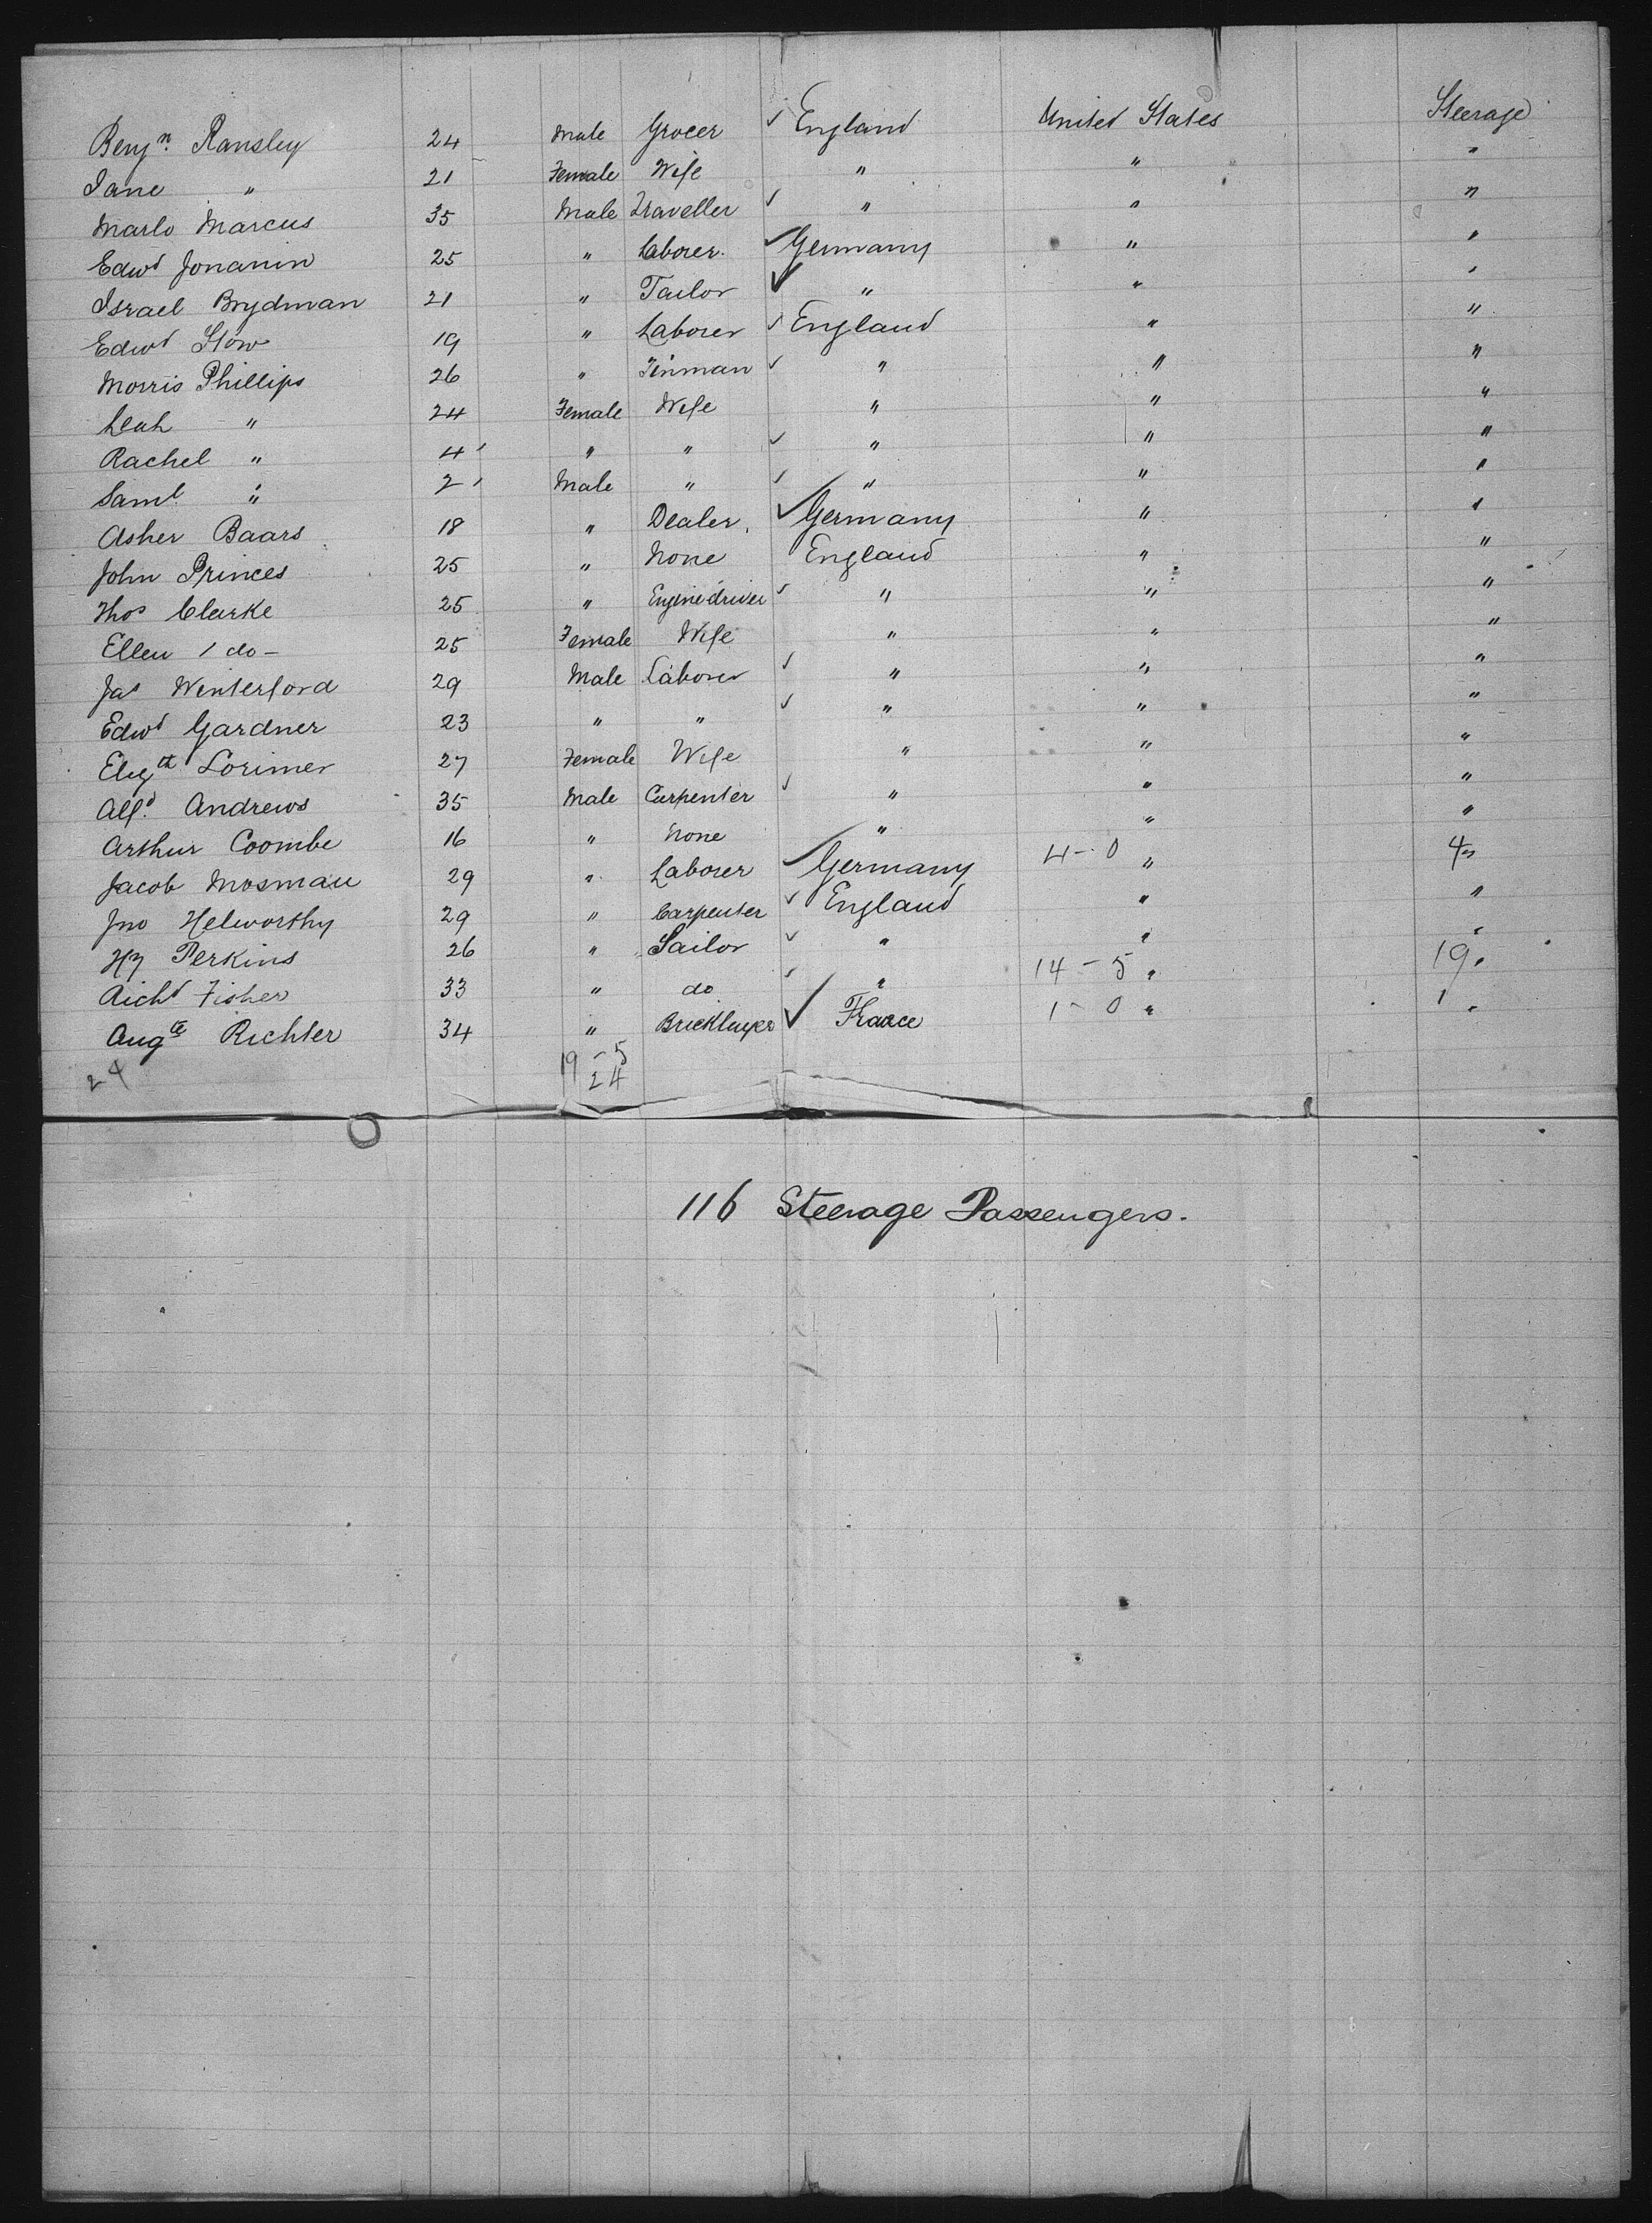 Benjn. Ransley 24 Male Grocer ✓ England United States Steerage
Jane " 21 Female Wife " " "
Marlo Marcus 35 Male Traveller ✓ " " "
Edwd 25 " Laborer. ✓ Germany " "
Israel Brydman 21 " Tailor ✓ " " "
Edwd Stow 19 " Laborer ✓ England " "
Morris Phillips 26 " Tinman ✓ " " "
Leah " 24 Female Wife " " "
Rachel " 4 " " ✓ " " "
Saml. " 2 Male " ✓ " " "
Asher Baars 18 " Dealer. ✓ Germany " "
John Princes 25 " None England " "
Thos Clarke 25 " Enginedriver ✓ " " "
Ellen / do - 25 Female Wife " " "
Jas Winterford 29 Male Laborer ✓ " " "
Edwd Gardner 23 " " ✓ " " "
Elizth Lorimer 27 Female Wife " " "
Alfd. Andrews 35 Male Carpenter ✓ " " "
Arthur Coombe 16 " None " " "
Jacob Mosman 29 " Laborer ✓ Germany 4-0 " 4 "
Jno Helworthy 29 " Carpenter ✓ England " "
Hy Perkins 26 " Sailor ✓ " " "
Richd Fisher 33 " do ✓ " 14-5 " 19 "
Augte Richter 34 " Bricklayer ✓ France 1-0 " 1 "
24 19-5
24
116 Steerage Passengers.